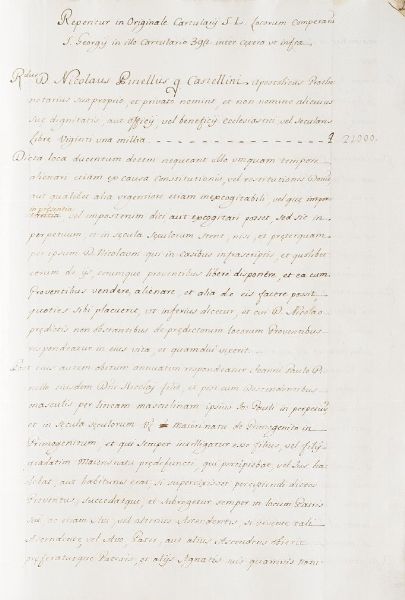 Reperitur in Originale Cartulario S. L. Locorum Comperarum
S. Georgij in illo Cartulario 394 inter cetera ut infra
R.dus D. Nicolaus Pinellus q. Castellini Apostolicus Protho
notarius suo proprio, et privato nomine, et non nomine alicuius
sue dignitatis, aut officij, vel beneficij ecclesiastici vel secularis
Libre Viginti una millia 21000.
Dicta loca ducentum decem nequeant ullo unquam tempore
alienari etiam ex causa Constitutionis, vel restitutionis Dotium
aut qualibet alia urgentiore etiam inexcogitabili, vel que
in presentia
vel imposterum dici aut excogitari posset sed sic in
perpetuum, et in secula seculorum stent, nisi, et preterquam
per ipsum D. Nicolaum qui in casibus infrascriptis, et quolibet
eorum de ijs, eorumque proventibus libere disponere, et ea cum
Proventibus vendere, alienare, et alia de eis facere possit
quoties sibi placuerit, ut inferius dicetur, et cui D. Nicolao
predictis non obstantibus de predictorum locorum Proventibus
respondeatur in eius vita, et quamdiu vixerit
Post eius autem obitum annuatim respondeatur Joanni Paulo Pi
nello eiusdem Dni Nicolai filio, et post eum descendentibus
masculis per lineam masculinam ipsius Jo: Pauli in perpetuum
et in secula seculorum de maiori nato de Primogenito in
Primogenitum, et qui semper intelligatur esse filius, vel filij
maiornatu predefuncti, qui participabat, vel ius ha
bebat, aut habiturus erat si supervixisset percipiendi dictos
Proventus, succedatque, et subrogetur semper in locum Patris
sui, ac etiam Avi, vel alterius Ascendentis, si vixerit tali
Ascendente, vel Avo, Pater, aut alius Ascendens obierit
preferaturque Patruis, et alijs Agnatis suis quamvis